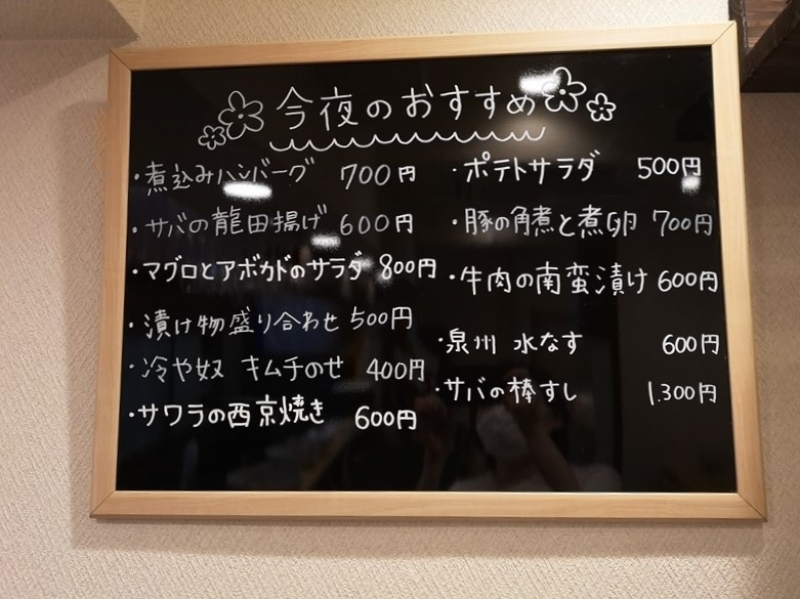 今夜のおすすめ
・煮込みハンバーグ 700円
・サバの龍田揚げ 600円
・マグロとアボカドのサラダ 800円
・漬け物盛り合わせ 500円
・冷や奴 キムチのせ 400円
・サワラの西京焼き 600円
・ポテトサラダ 500円
・豚の角煮と煮卵 700円
・牛肉の南蛮漬け 600円
・泉州 水なす 600円
・サバの棒すし 1.300円